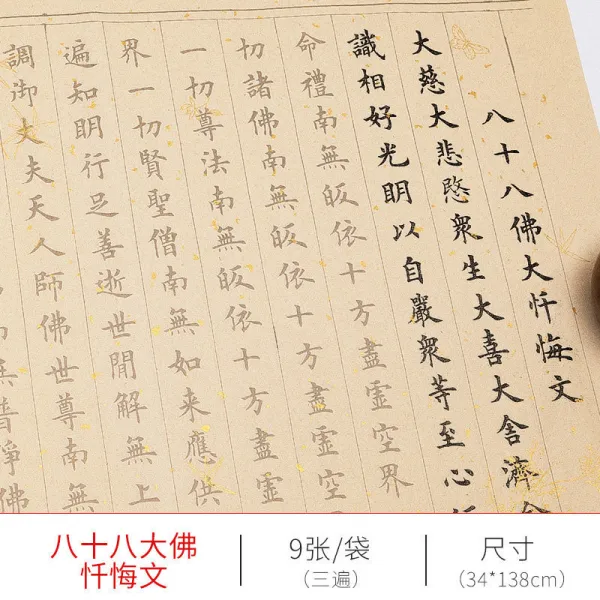 八十八佛大忏悔文
大慈大悲愍衆生大喜大舍濟
識相好光明以自嚴衆等至心
命禮南無皈依十方盡虛空界
切諸佛南無皈依十方盡虛空
一切尊法南無皈依十方盡虛
界一切賢聖僧南無如来應供
遍知明行足善逝世間解無上
調御丈夫天人師佛世尊南無
無普淨佛
八十八大佛
忏悔文
9张/袋
(三遍)
尺寸
(34*138cm)